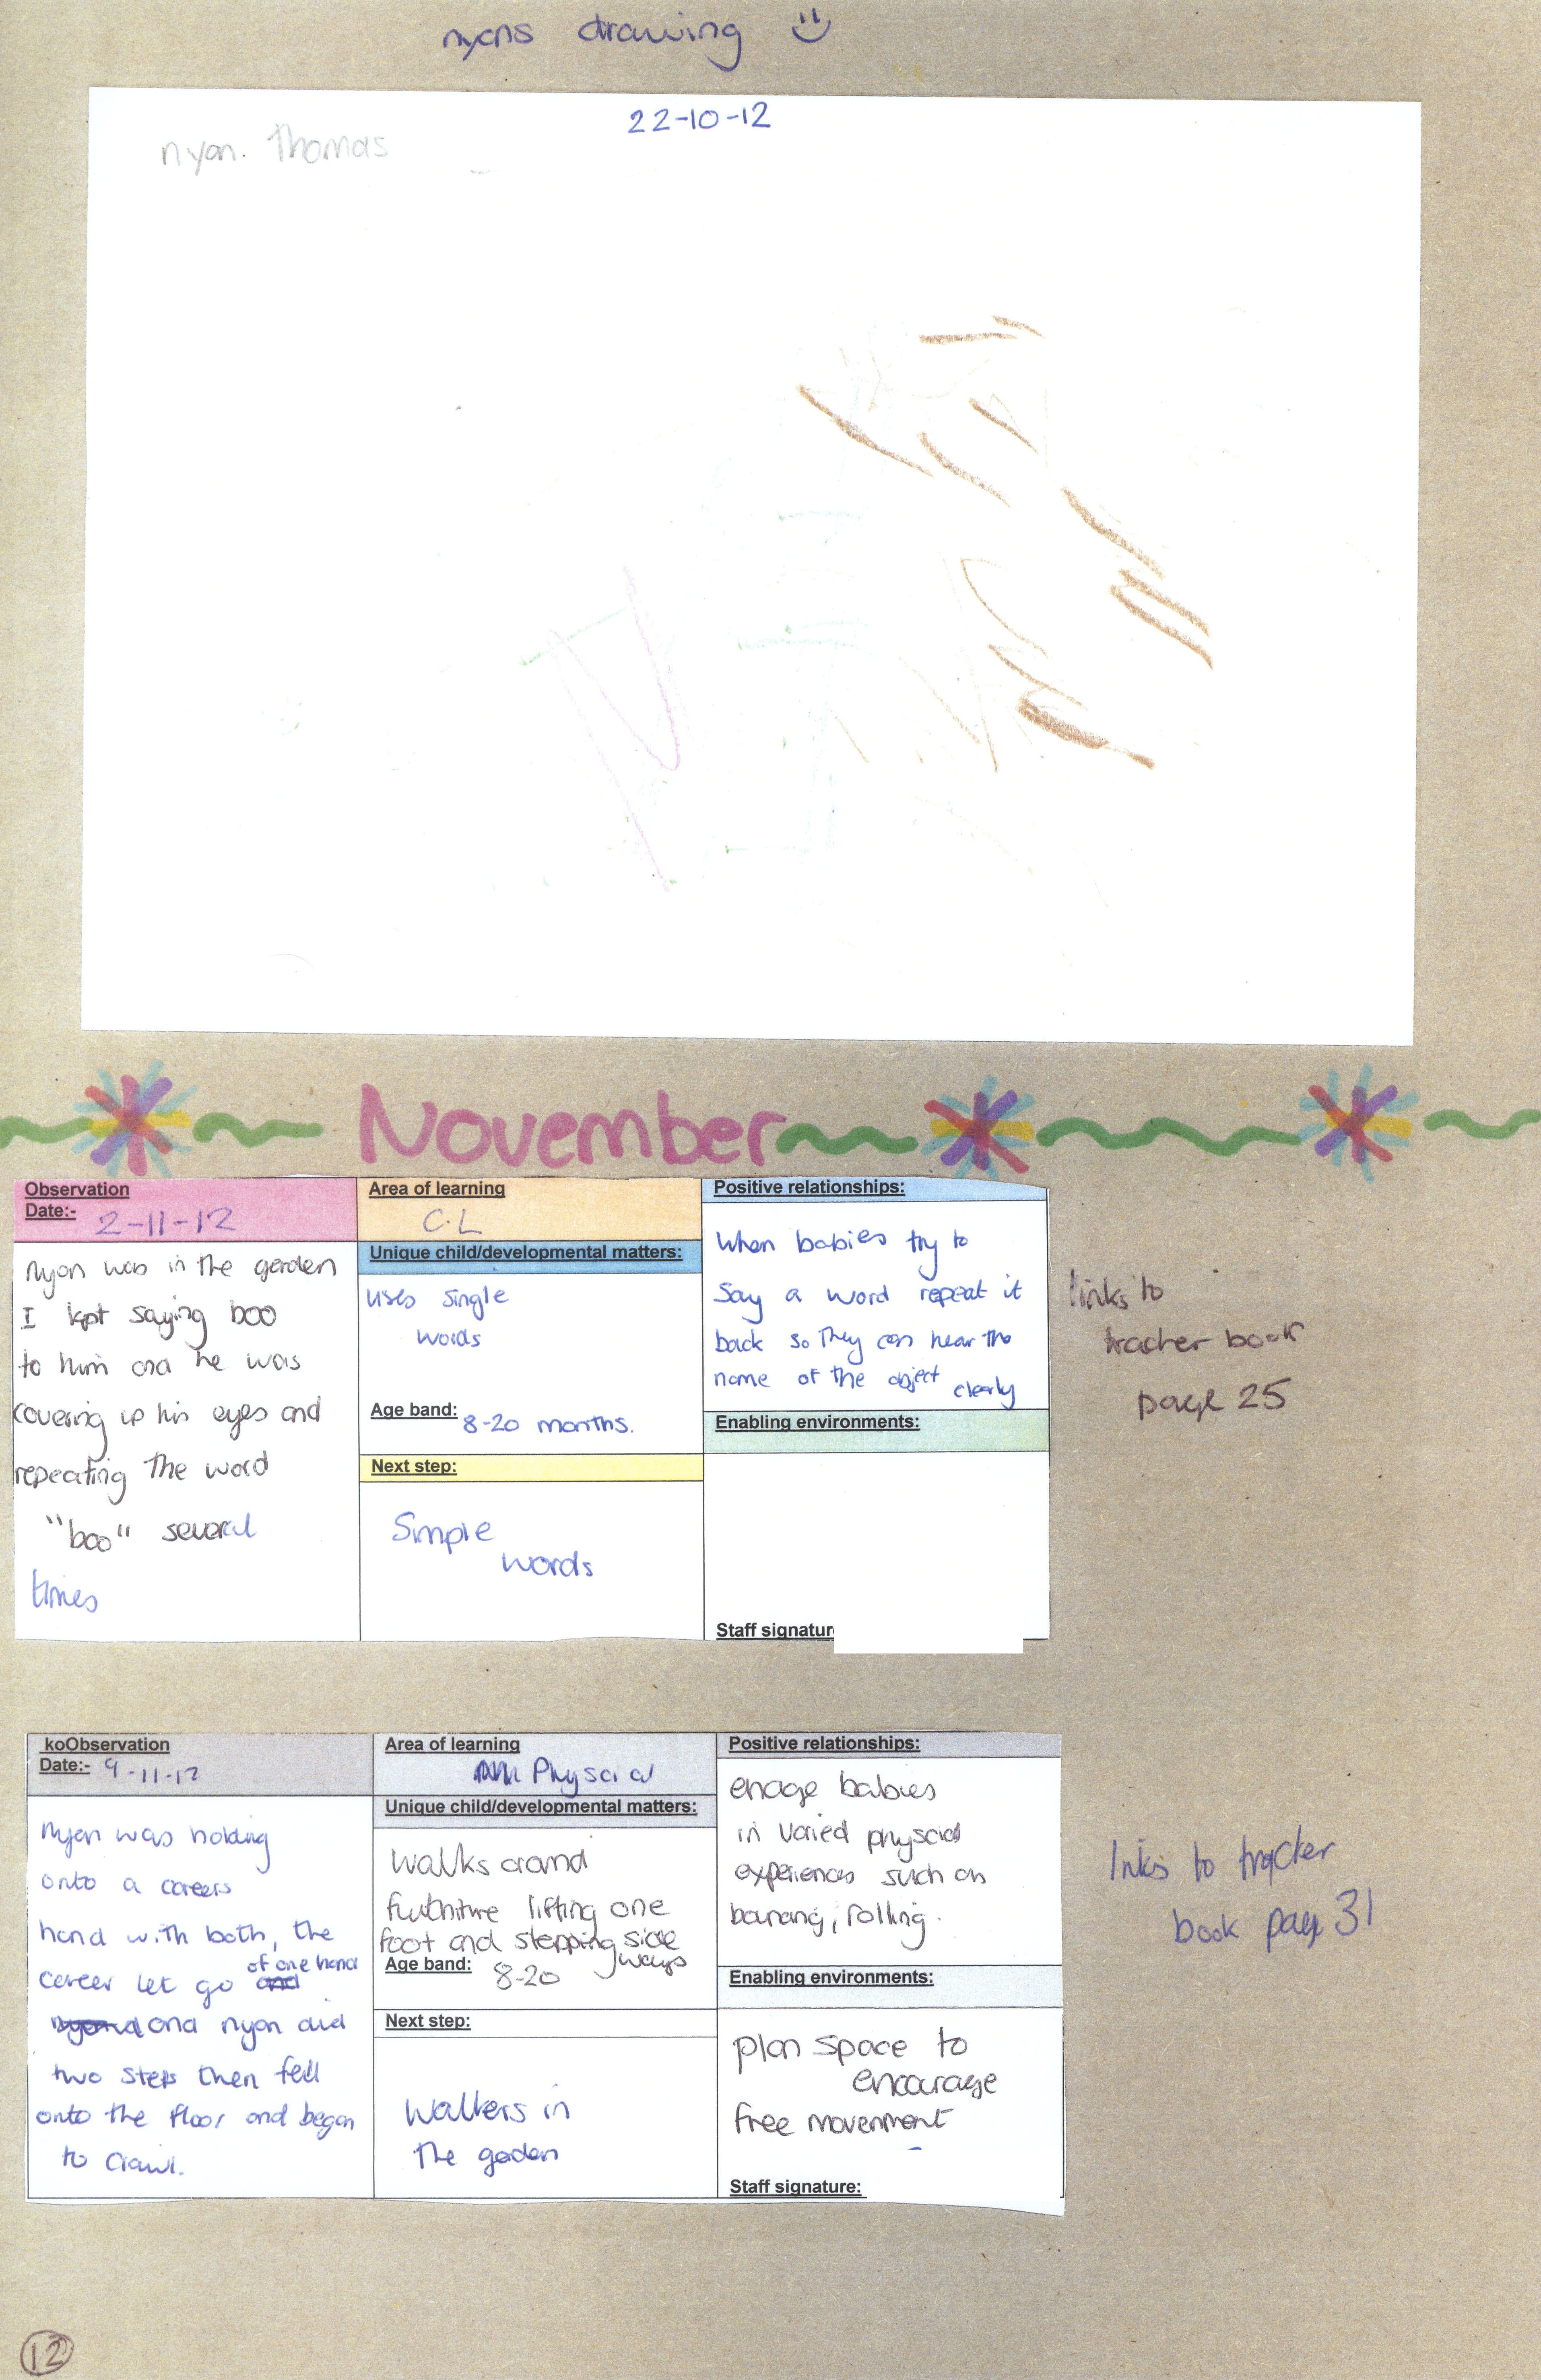 nyans drawing
22-10-12
nyan. Thomas
November
Observation
Date:- 2-11-12
Nyan was in the garden
I kept saying boo
to him and he was
covering up his eyes and
repeating the word
"boo" several
times
Area of learning
C.L
Unique child/developmental matters:
uses single
words
Age band: 8-20 months.
Next step:
Simple
words
Positive relationships:
When babies try to
say a word repeat it
back so they can hear the
name of the object clearly
Enabling environments:
Staff signatur
links to
tracher book
page 25
koObservation
Date:- 9-11-12
Nyan was holding
onto a careers
hand with both, the
career let go of one hand
and nyan did
two steps then fell
onto the floor and began
to crawl.
Area of learning
Physcial
Unique child/developmental matters:
Walks around
furthiture lifting one
foot and stepping side
ways
Age band: 8-20
Next step:
Walkers in
the garden
Positive relationships:
enage babies
in varied physcial
experiences such as
rolling.
Enabling environments:
plan space to
encourage
free movenment
Staff signature:
links to tracker
book page 31
12